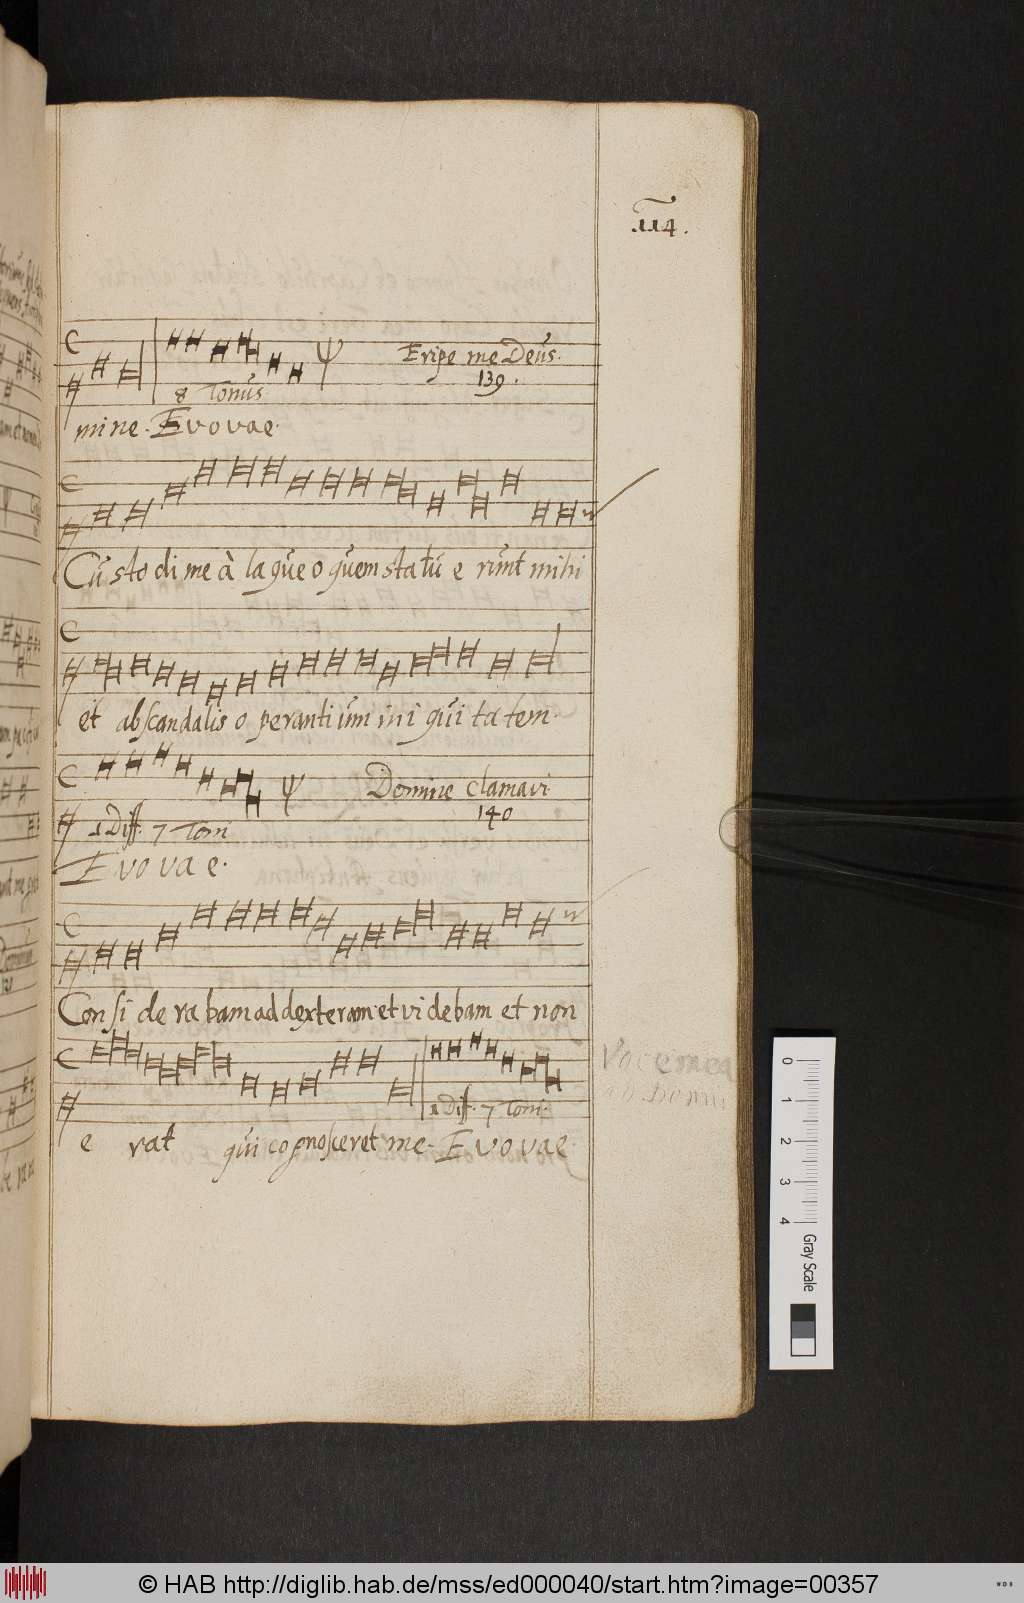 114.
Eripe me Deús.
139.
8 Tonús
mine. Evovae.
Cústodi me à laqúeo qúem statúerúnt mihi
et ab scandalis operantiúm iniqúitatem.
Domine clamavi
140
1 Diff. 7 Toni
Evovae.
Considerabam ad dexteram et videbam et non
Vocem mea
1 Diff. 7 Toni.
erat qúi cognosceret me. Evovae.
0
1
2
3
4
Gray Scale
© HAB http://diglib.hab.de/mss/ed000040/start.htm?image=00357